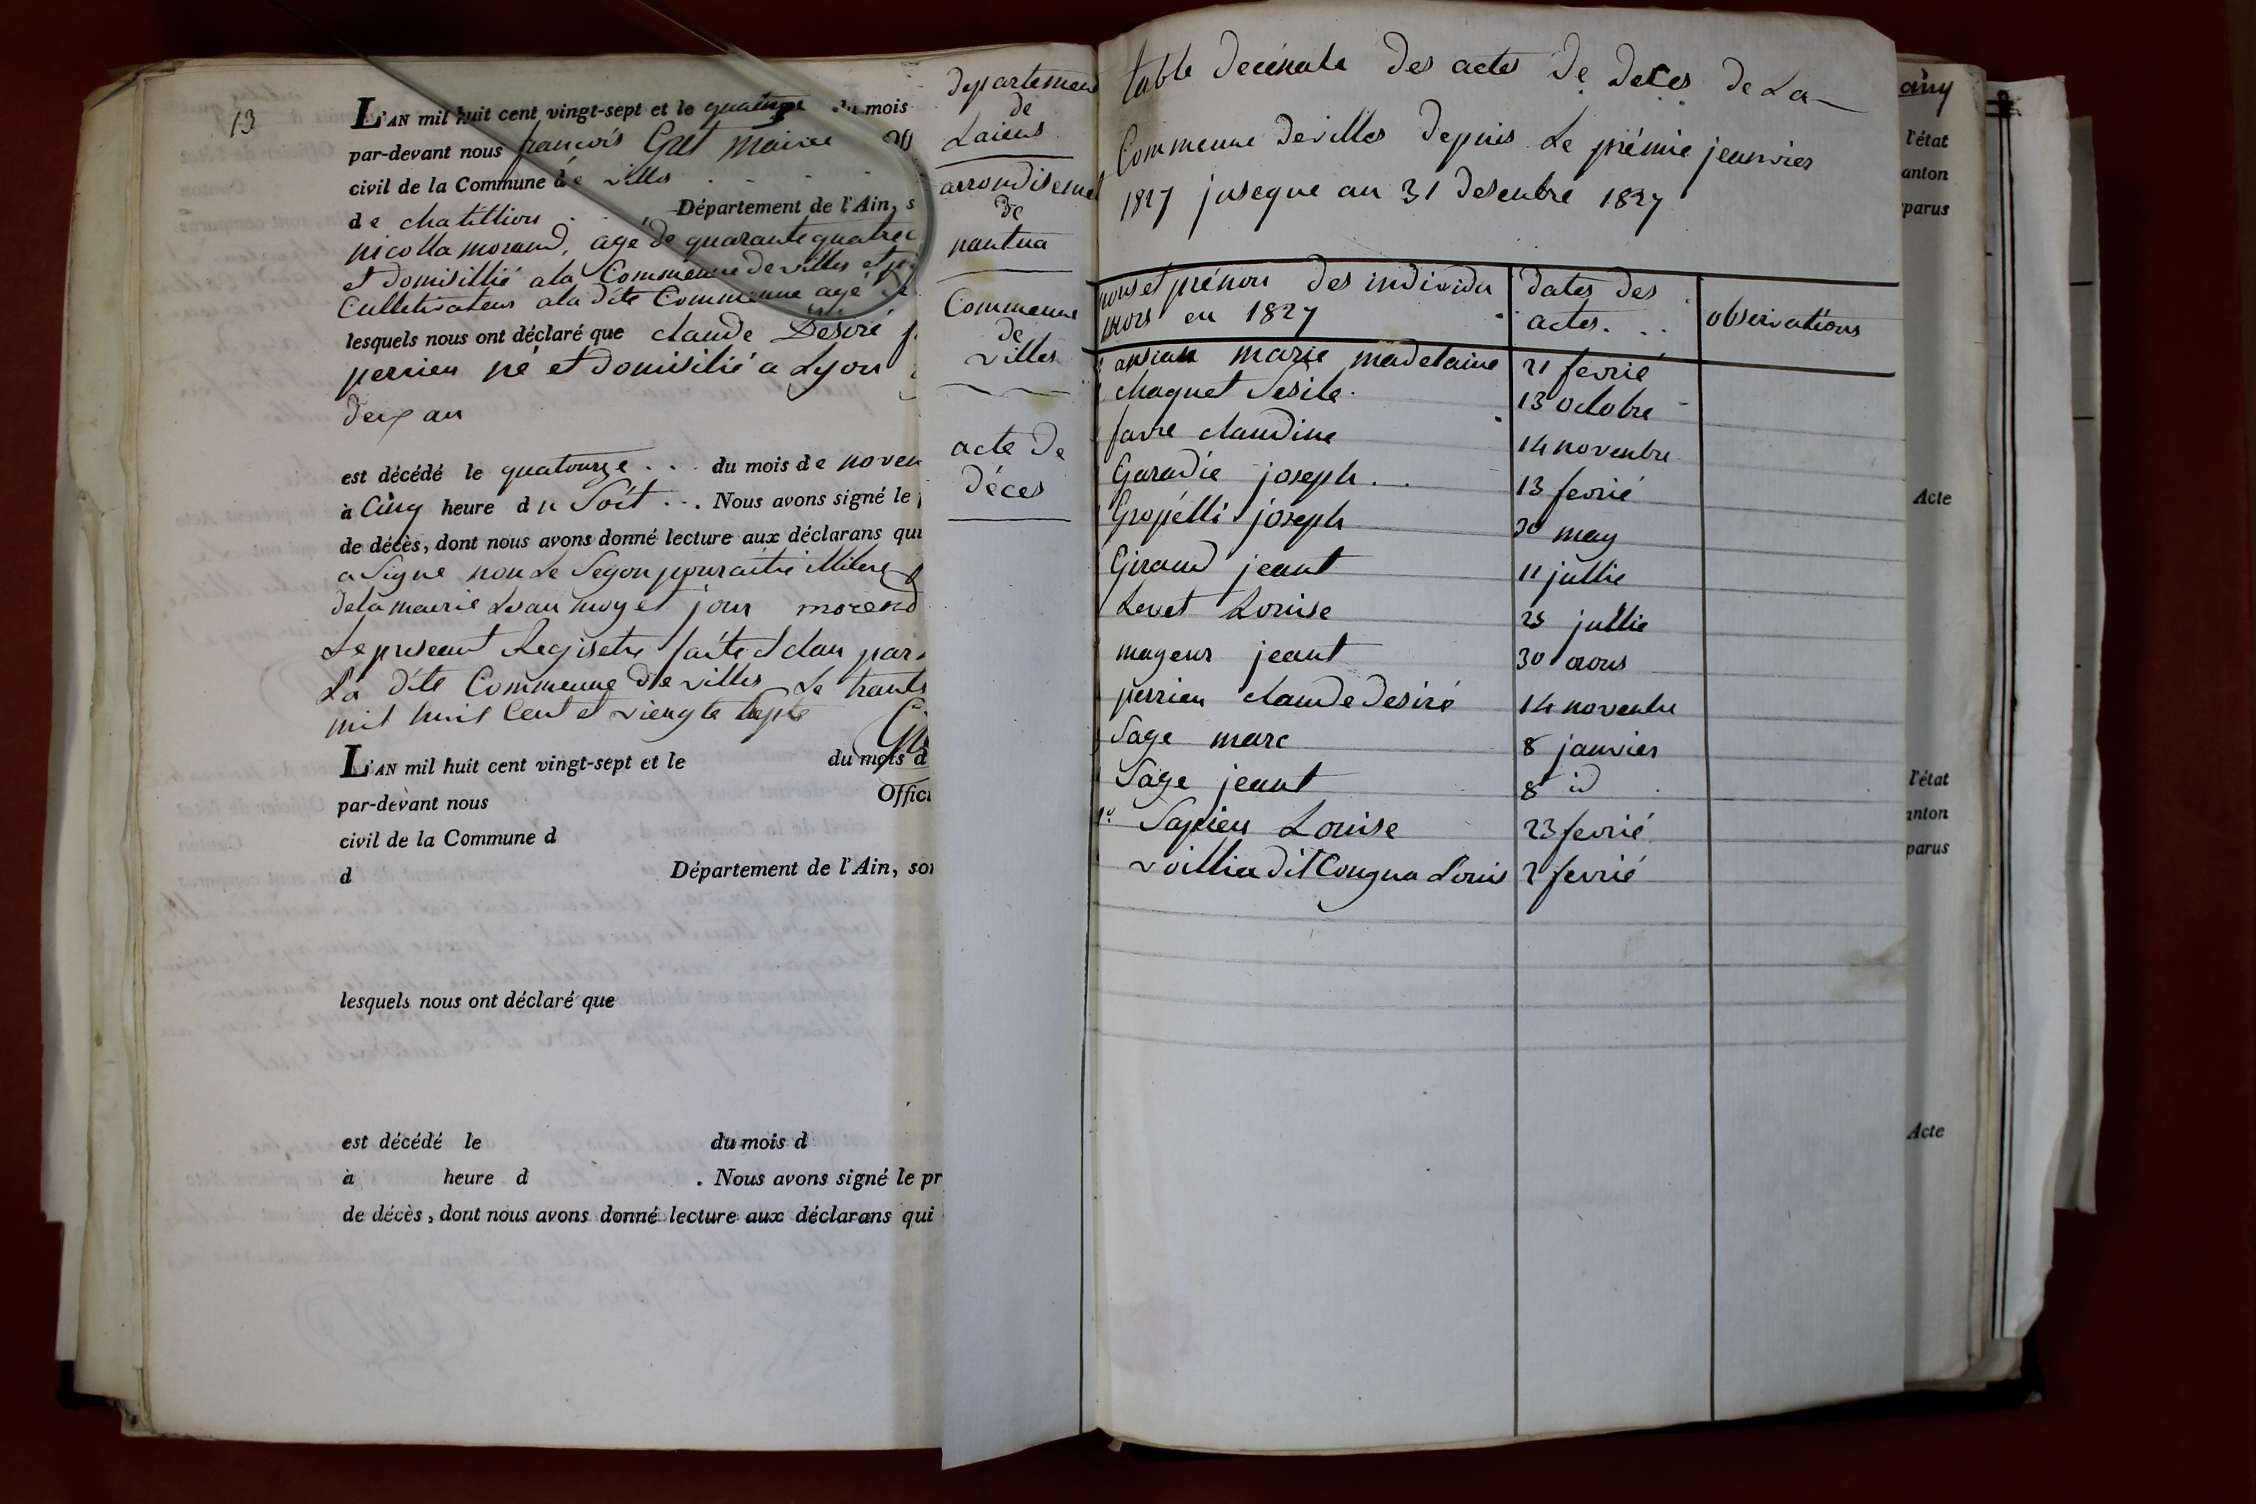 13
L'AN mil huit cent vingt-sept et le quainze du mois
par-devant nous françois Gret maire Off
civil de la Commune de villes
de chatillion Département de l'Ain, s
nicolla morand, age de quarante quatre
et domisillié a la Commeune de villes et
Culletivateur a la dite Commeune agé de
lesquels nous ont déclaré que claude Desiré
perrien né et domisilié a Lyon
deux an
est décédé le quatourze du mois de noven
à Cinq heure du Soit . Nous avons signé le
de décès, dont nous avons donné lecture aux déclarans qui
a Signe non Le Segon pour aitre illitere
de la mairie Les an moy et jour morend
Le preseant Registre faite et clau par
La dite Commeune de villes Le trante
mil huit Cent et viengte septe
L'AN mil huit cent vingt-sept et le du mois d
par-devant nous Offici
civil de la Commune d
d Département de l'Ain, son
lesquels nous ont déclaré que
est décédé le du mois d
à heure d . Nous avons signé le pr
de décès, dont nous avons donné lecture aux déclarans qui
departement
de
Laiens
arrondisement
de
nantua
Commeune
de
villes
acte de
déces
table decénale des actes de deces de La
Commeune de villes depuis Le prémié jeanvier
1827 juseque au 31 desenbre 1827
noms et prénon des individu mors en 1827 dates des actes. observations
ansian marie madelaine 21 fevrié
chaquet Sesile 13 octobre
favre claudine 14 novenbre
Garadié joseph 13 fevrié
Gropélli joseph 30 may
Giraud jeant 11 jullie
Levet Louise 25 jullie
mayeur jeant 30 aous
perrien claude desiré 14 novenbre
Sage marc 8 janvier
Sage jeant 8 id
Sapien Louise 23 fevrié
voillia dit Cougna Louis 2 fevrié
l'état
anton
parus
Acte
l'état
anton
parus
Acte